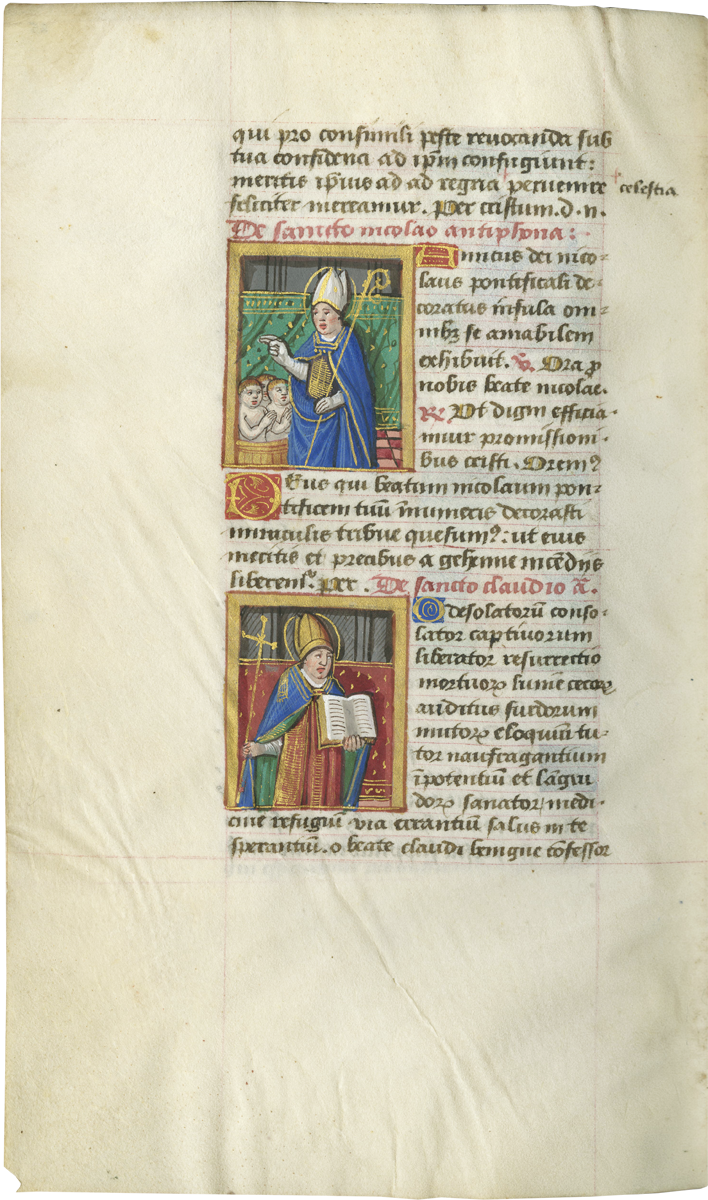 qui pro consimili peste reuocanda sub
tua confidenci ad ip̄m confugiunt:
meritis ip̄ius ad ad regna peruenire celestia
feliciter mereamur. Per cristum. d. n.
De sancto nicolao antiphona:
Amicus dei nico-
laus pontificali de-
coratus insula om-
nibꝫ se amabilem
exhibuit. ℣. Ora p̄
nobis beate nicolae.
℟. Vt digni efficia-
mur promissioni-
bus cristi. Oremꝰ
Deus qui beatum nicolaum pon-
tificem tuū īnumeris decorasti
miraculis tribue quesumꝰ: ut eius
meritis et precibus a gehenne incēdijs
liberemꝰ. per. De sancto claudio ā.
O desolatorū conso-
lator captiuorum
liberator resurrectio
mortuoꝝ lumē cecoꝝ
auditus surdorum
mutoꝝ eloquiū tu-
tor naufragantium
īpotentiū et lāgui
doꝝ sanator, medi-
cine refugiū via errantiū salus in te
sperantiū. o beate claudi benigne cōfessor